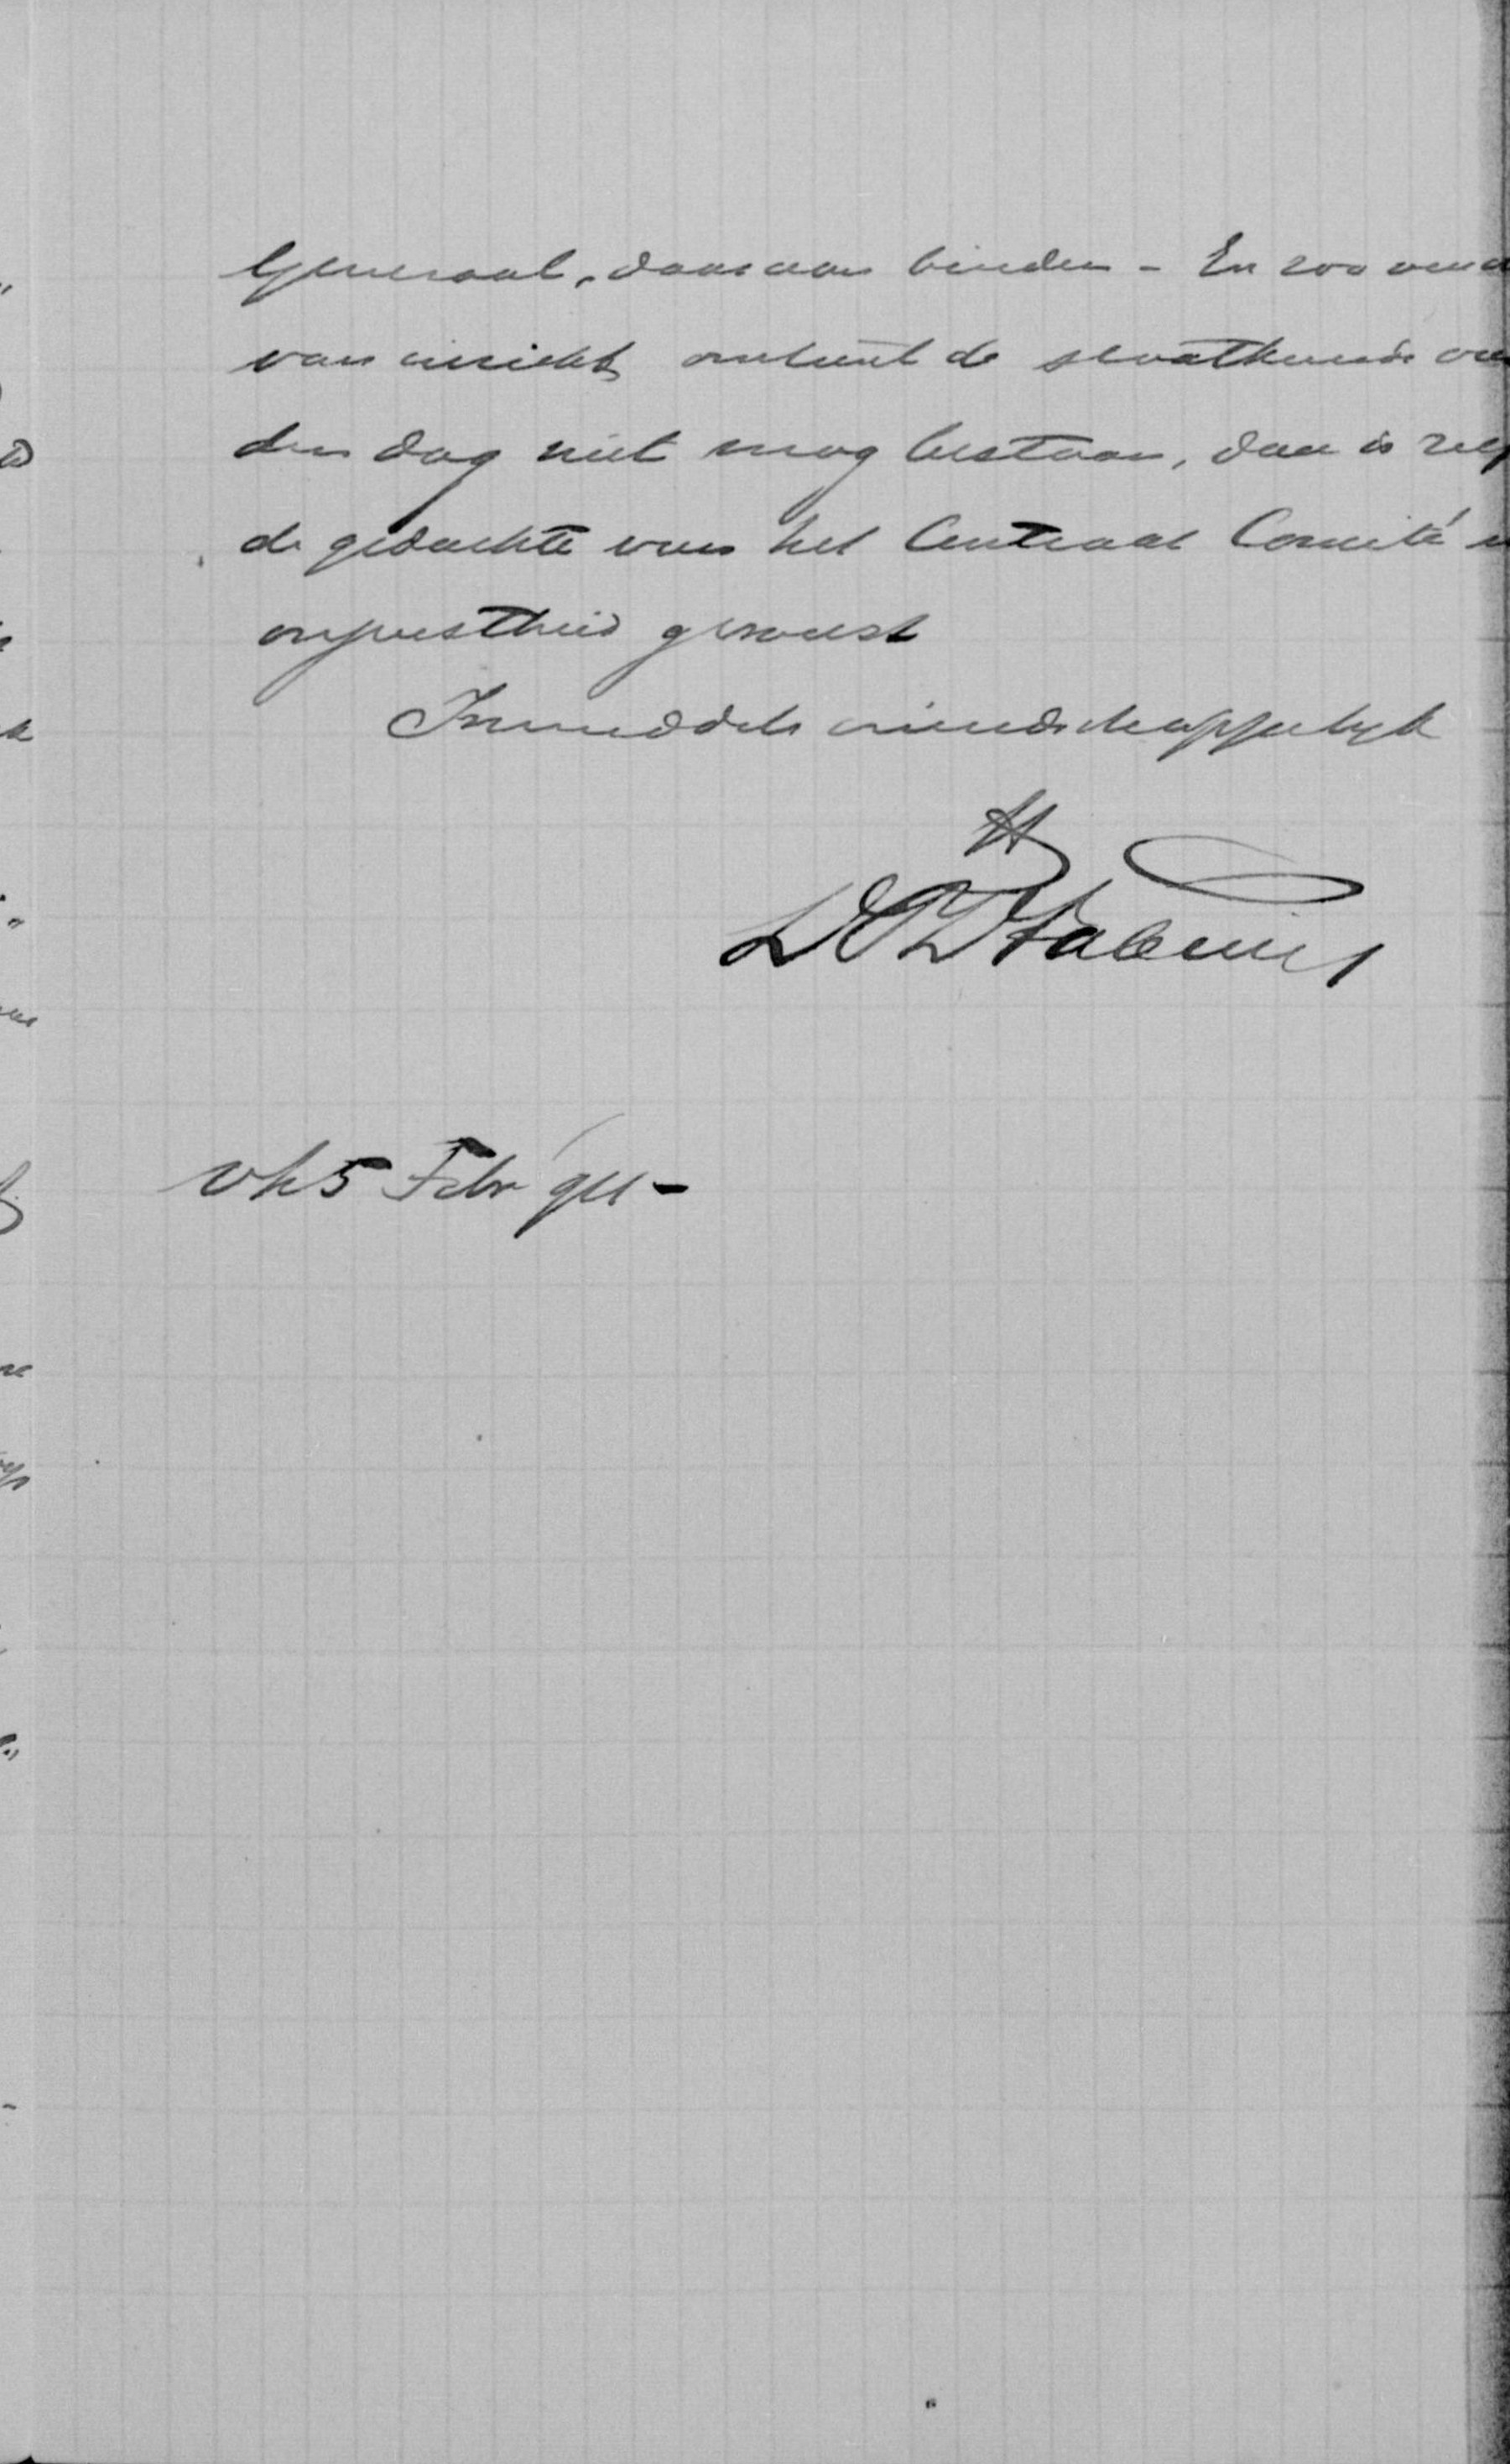 Generaal, daaraan binden - En zoo
van inzicht omtrent de staatkunde
den dag niet mag bestaan, dan is
de gedachte van het Centraal Comité
onjuistheid geweest
Inmiddels vriendschappelijk
tt
DPDFabius
5 Febr